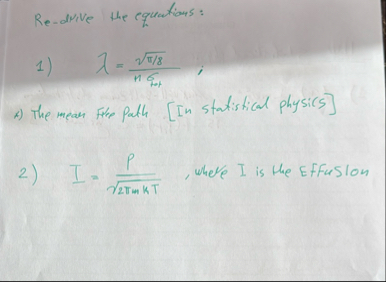 Re-drive the equations:
1) λ = √π/8 / n σtot ;
*) The mean Free Path [In statistical physics]
2) I = P / √2πmKT , where I is the Effusion